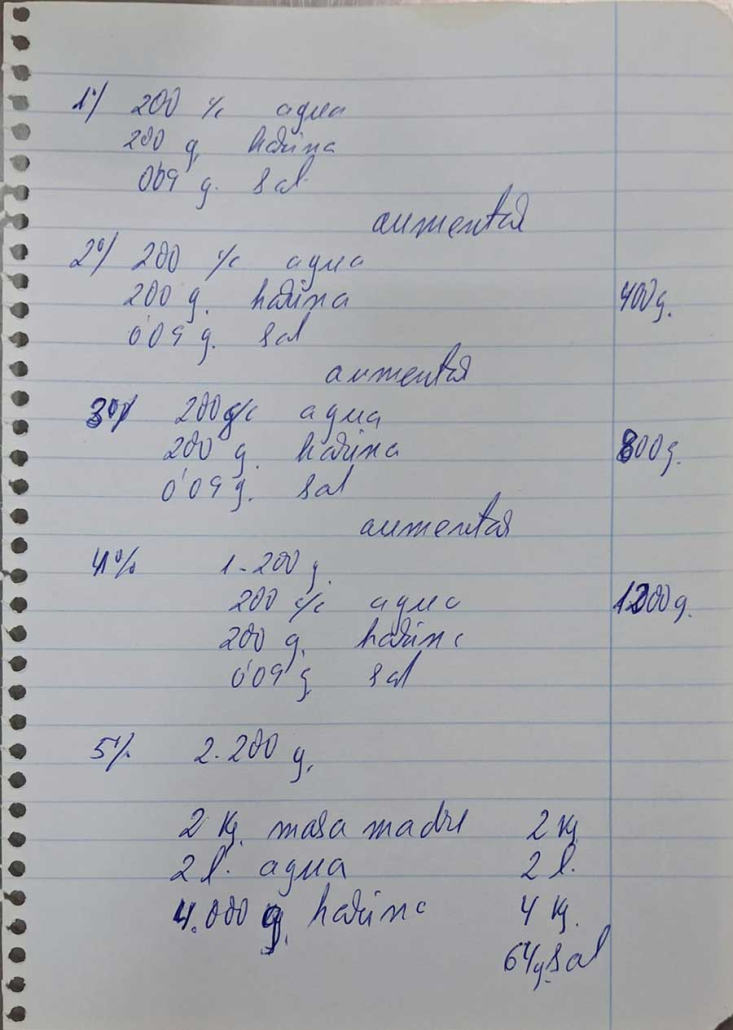 1º/ 200 c/c agua
200 g. harina
0'09 g. sal
aumentar
2º/ 200 c/c agua
200 g. harina 400 g.
0'09 g. sal
aumentar
3º/ 200 c/c agua
200 g. harina 800 g.
0'09 g. sal
aumentar
4º/ 1.200 g.
200 c/c agua 1200 g.
200 g. harina
0'09 g. sal
5º/ 2.200 g.
2 Kg. masa madre 2 Kg
2 l. agua 2 l.
4.000 g. harina 4 Kg.
64 g. sal